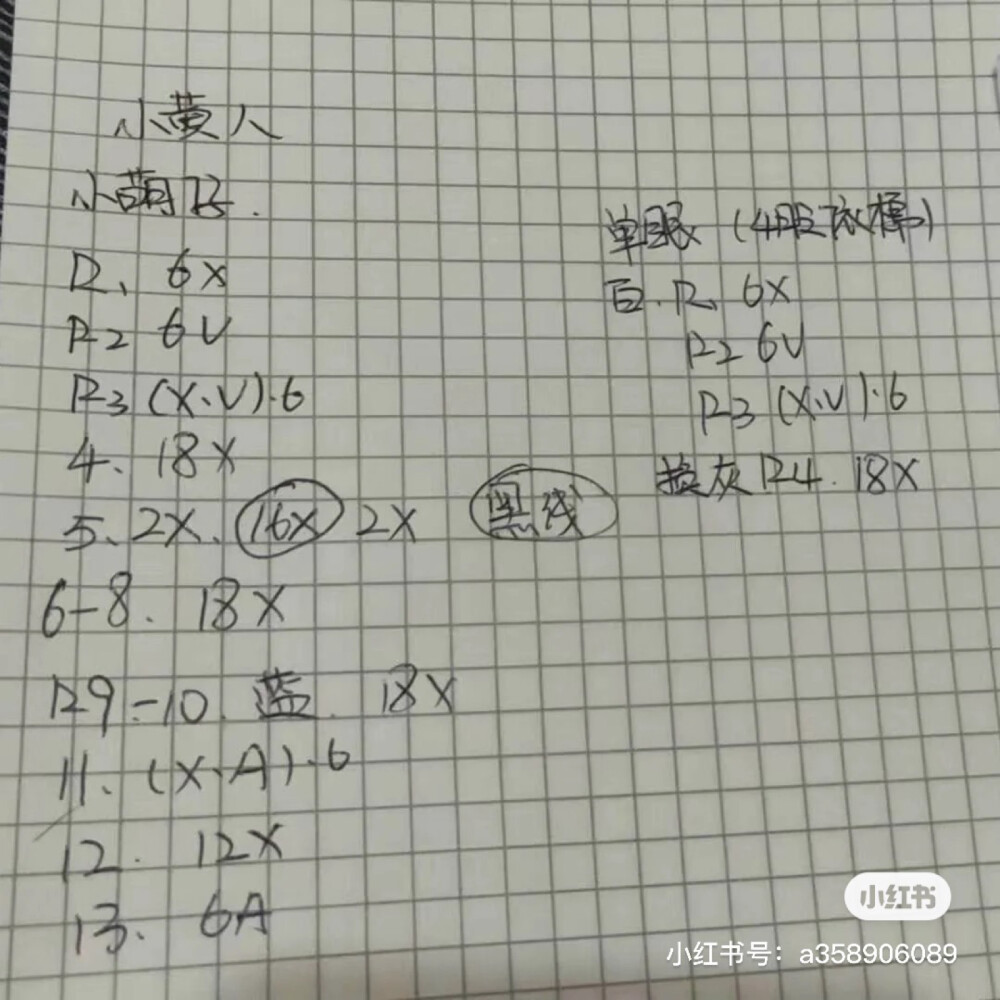 小黄人
小萌仔.
R1 6X
R2 6V
R3 (X.V).6
4. 18X
5. 2X. 16X 2X 黑线
6-8. 18X
R9-10. 蓝. 18X
11. (X.A).6
12. 12X
13. 6A
单眼 (4股
白. R1 6X
R2 6V
R3 (X.V).6
换灰 R4. 18X
小红书
小红书号：a358906089